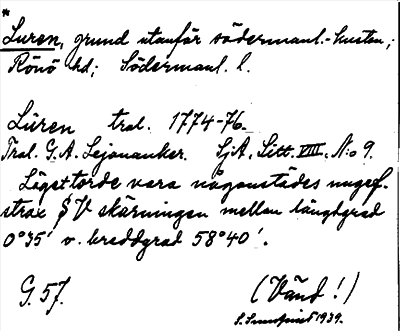 *
Luren, grund utanför södermanl.-kusten,;
Rönö hd; Södermanl. l.
Luren tral. 1774-76.
Tral. G. A. Lejonanker. SjA, Litt. VIII, N:o 9.
Läget torde vara någonstädes ungef.
strax SV skärningen mellan längdgrad
0°35' v. breddgrad 58°40'.
G. 57. (Vänd!)
S. 1939.